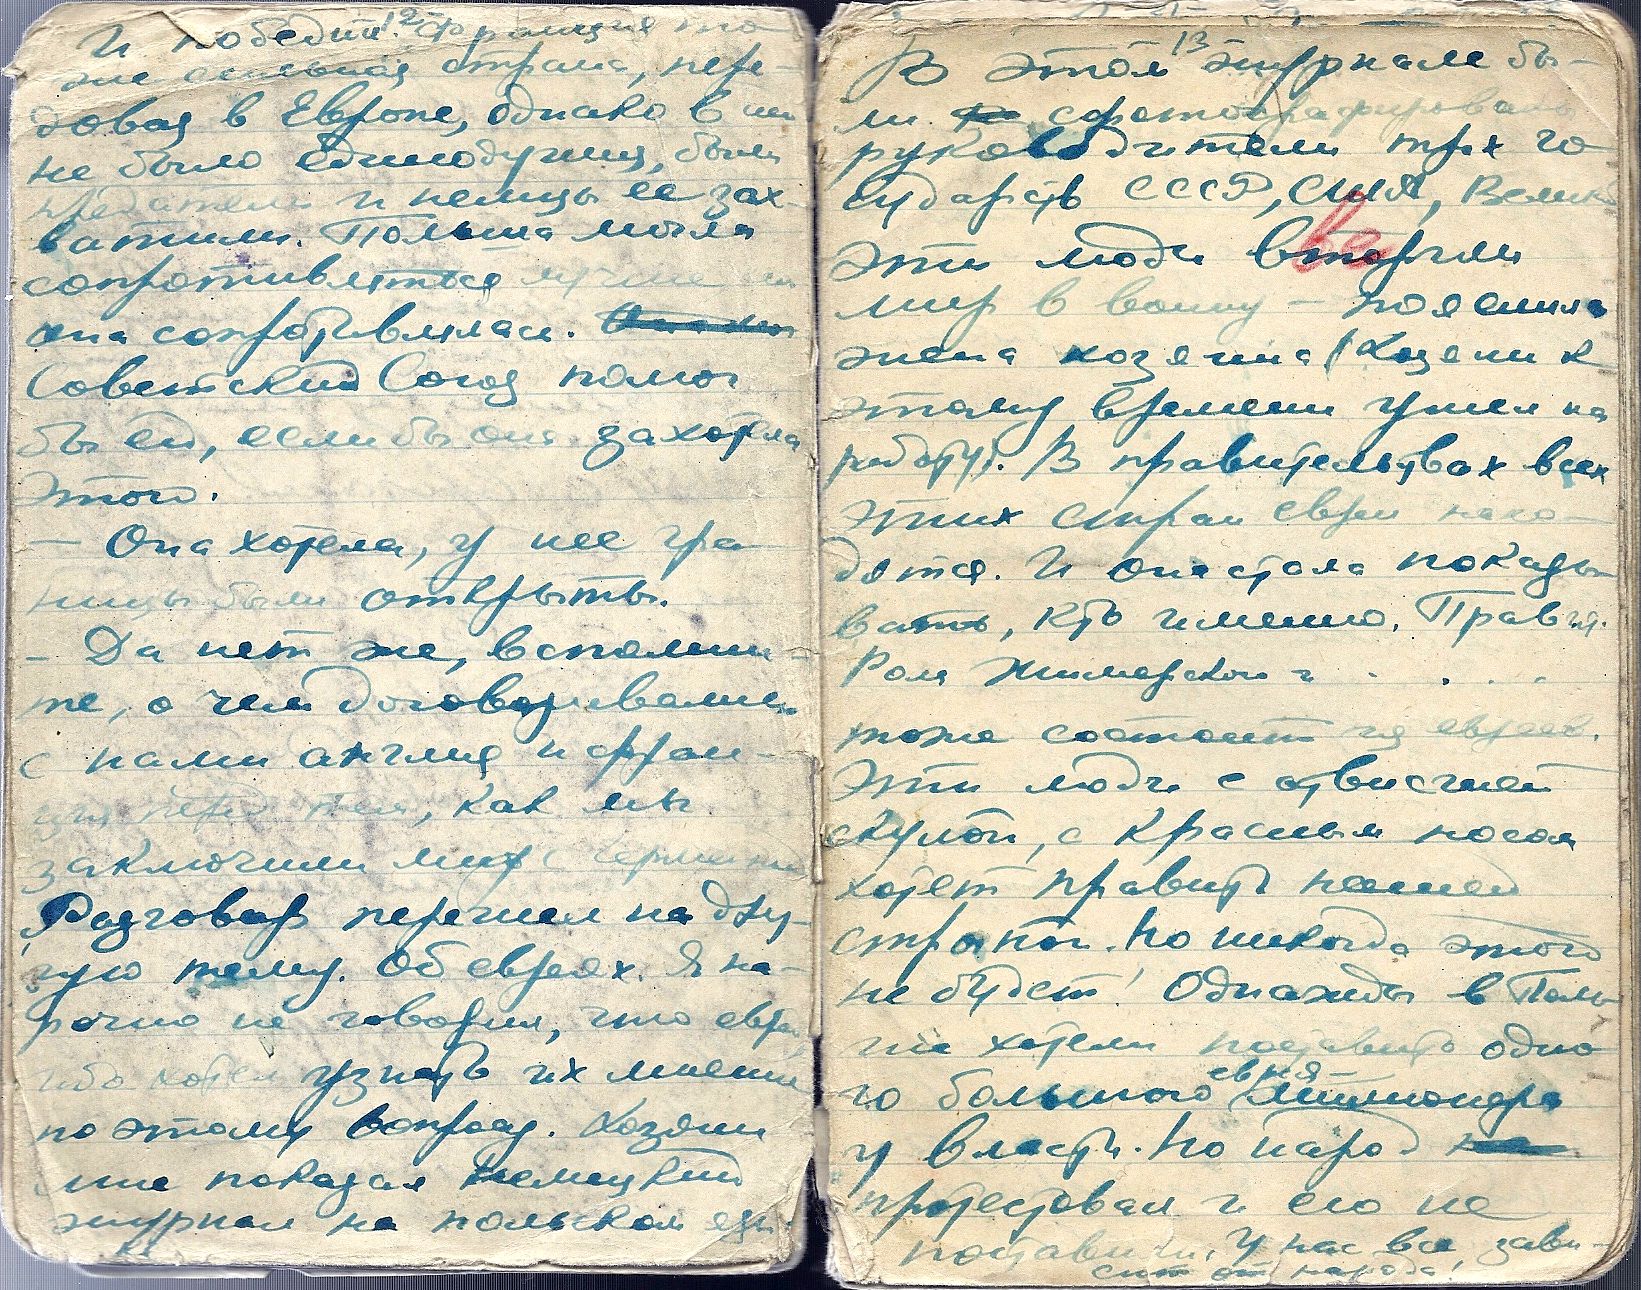 12
И победит. Франция то-
же сильная страна, пере-
довая в Европе, однако в ней
не было единодушия, были
предатели и немцы ее зах-
ватили. Польша могла
сопротивляться лучше чем
она сопротивлялась.
Советский Союз помог
бы ей, если бы она захотела
этого.
– Она хотела, у нее гра-
ницы были открыты.
– Да нет же, вспомни-
те, о чем договаривались
с нами англия и фран-
ция перед тем, как мы
заключили мир с германией
Разговор перешел на дру-
гую тему. Об евреях. Я на-
рочно не говорил, что еврей,
ибо хотел узнать их мнение
по этому вопросу. Хозяин
мне показал немецкий
журнал на польском язы-
13
В этом журнале бы-
ли сфотографированы
руководители трех го
сударств СССР, США, Велико
ва
Эти люди втеряли
мир в войну – пояснила
жена хозяина (Хозяин к
этому времени ушел на
работу). В правительствах всех
этих стран евреи нахо-
дятся. И она стала показы-
вать, кто именно. Прав-ия.
Роля Жимерского и . . . .
тоже состоит из евреев.
Эти люди с отвисшей
скулой, с красным носом
хотят править нашей
страной. Но никогда этого
не будет! Однажды в Поль
ше хотели поставить одно
го большого миллионера
еврея-
у власти. Но народ
протестовал и его не
поставили. У нас все зави-
сит от народа!